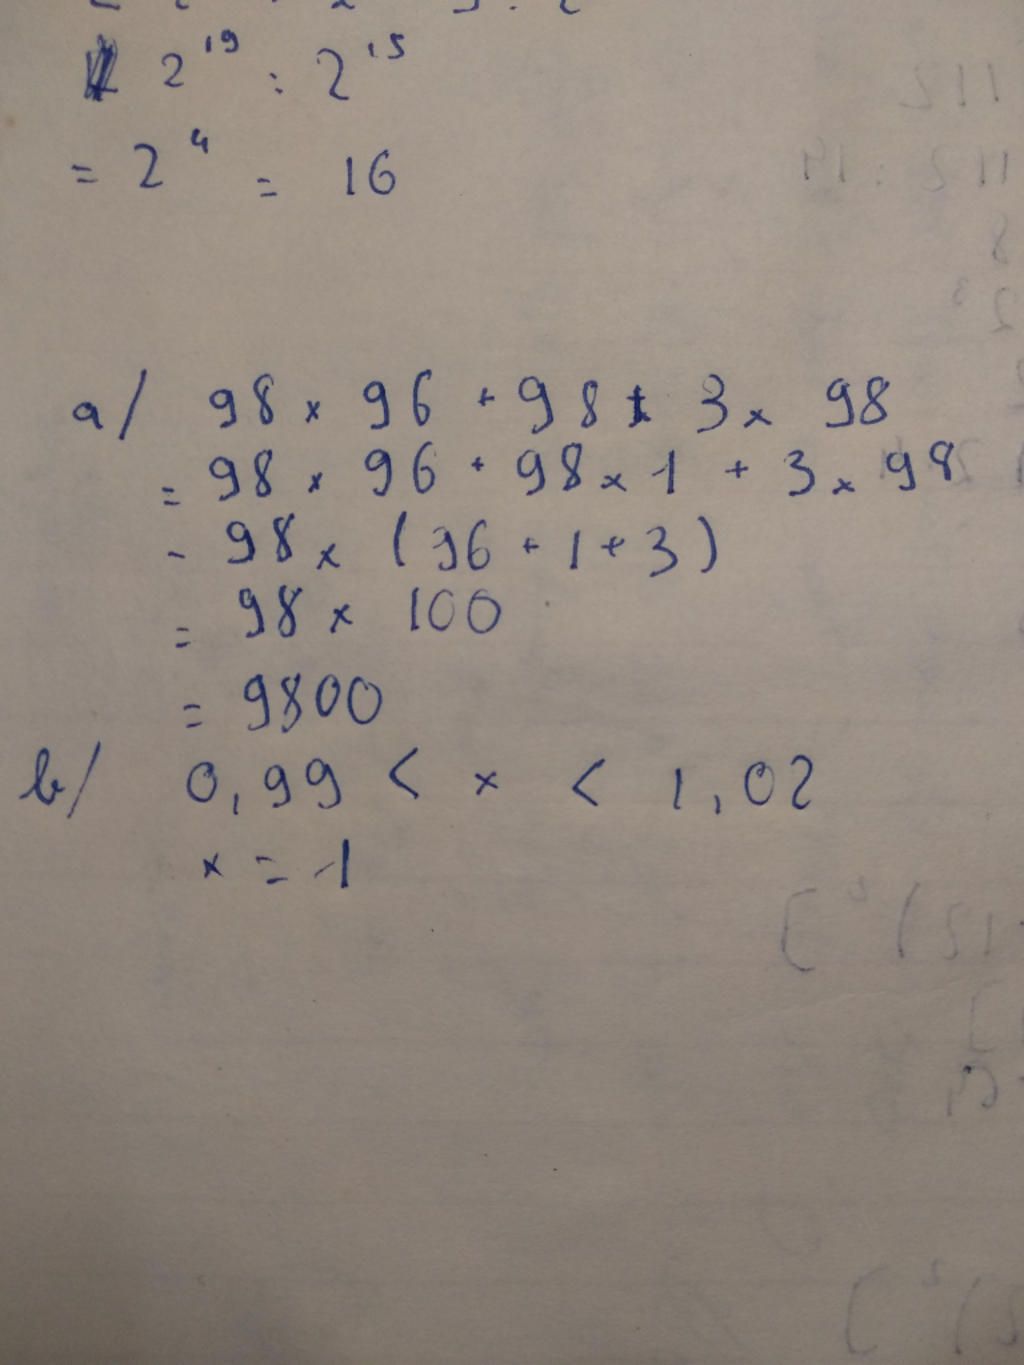 2¹⁹ : 2¹⁵
= 2⁴ = 16
a/ 98 x 96 + 98 + 3 x 98
= 98 x 96 + 98 x 1 + 3 x 98
= 98 x (96 + 1 + 3)
= 98 x 100
= 9800
b/ 0,99 < x < 1,02
x = 1